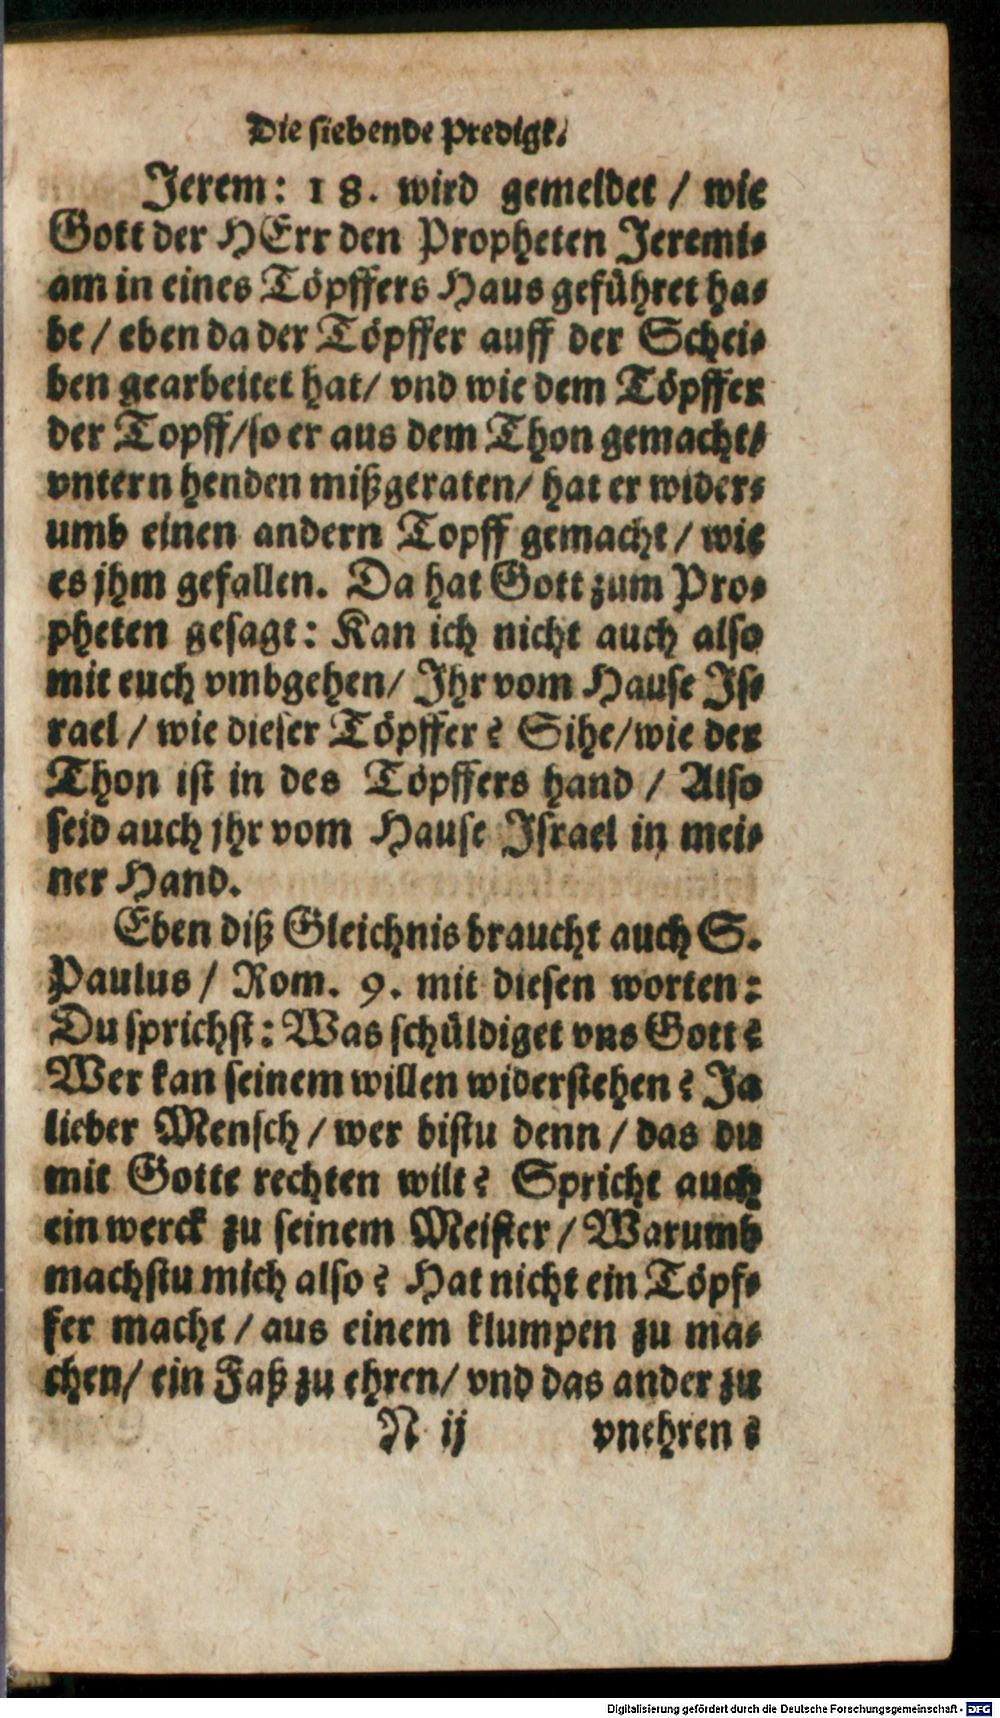 Die siebende Predigt.
Jerem: 18. wird gemeldet / wie
Gott der HErr den Propheten Jeremi-
am in eines Töpffers Haus geführet ha-
be / eben da der Töpffer auff der Schei-
ben gearbeitet hat / vnd wie dem Töpffer
der Topff / so er aus dem Thon gemacht /
vntern henden mißgeraten / hat er wider-
umb einen andern Topff gemacht / wie
es jhm gefallen. Da hat Gott zum Pro-
pheten gesagt: Kan ich nicht auch also
mit euch vmbgehen / Jhr vom Hause Js-
rael / wie dieser Töpffer? Sihe / wie der
Thon ist in des Töpffers hand / Also
seid auch jhr vom Hause Jsrael in mei-
ner Hand.
Eben diß Gleichnis braucht auch S.
Paulus / Rom. 9. mit diesen worten:
Du sprichst: Was schüldiget vns Gott?
Wer kan seinem willen widerstehen? Ja
lieber Mensch / wer bistu denn / das du
mit Gotte rechten wilt? Spricht auch
ein werck zu seinem Meister / Warumb
machstu mich also? Hat nicht ein Töpf-
fer macht / aus einem klumpen zu ma-
chen / ein Faß zu ehren / vnd das ander zu
N ij vnehren?
Digitalisierung gefördert durch die Deutsche Forschungsgemeinschaft - DFG